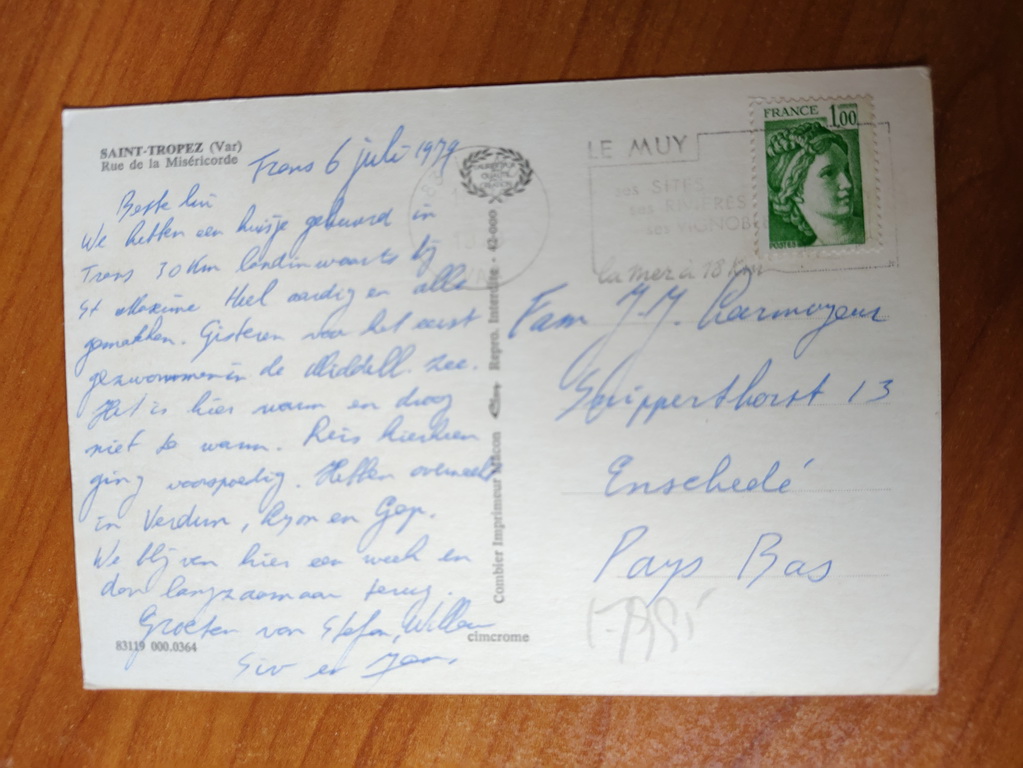 SAINT-TROPEZ (Var)
Rue de la Miséricorde
Trans 6 juli 1979
Beste
We hebben een huisje gehuurd in
Trans 30 Km landinwaarts bij
St Maxime Heel aardig en alle
gemakken. Gisteren voor het eerst
gezwommen in de Middell. zee.
Het is hier warm en droog
niet te warm. Reis hierheen
ging voorspoedig. Hebben overnacht
in Verdun, Lyon en Gap.
We blijven hier een week en
dan langzaamaan terug.
Groeten van Stefan, Willem
Siv en Jan.
83119 000.0364
cimcrome
Combier Imprimeur Mâcon
Repro. Interdite - 42-000
LE MUY
ses SITES
ses RIVIÈRES
ses VIGNOBLES
la mer à 18 Km
FRANCE 1,00
POSTES
Fam J.J.
13
Enschedé
Pays Bas